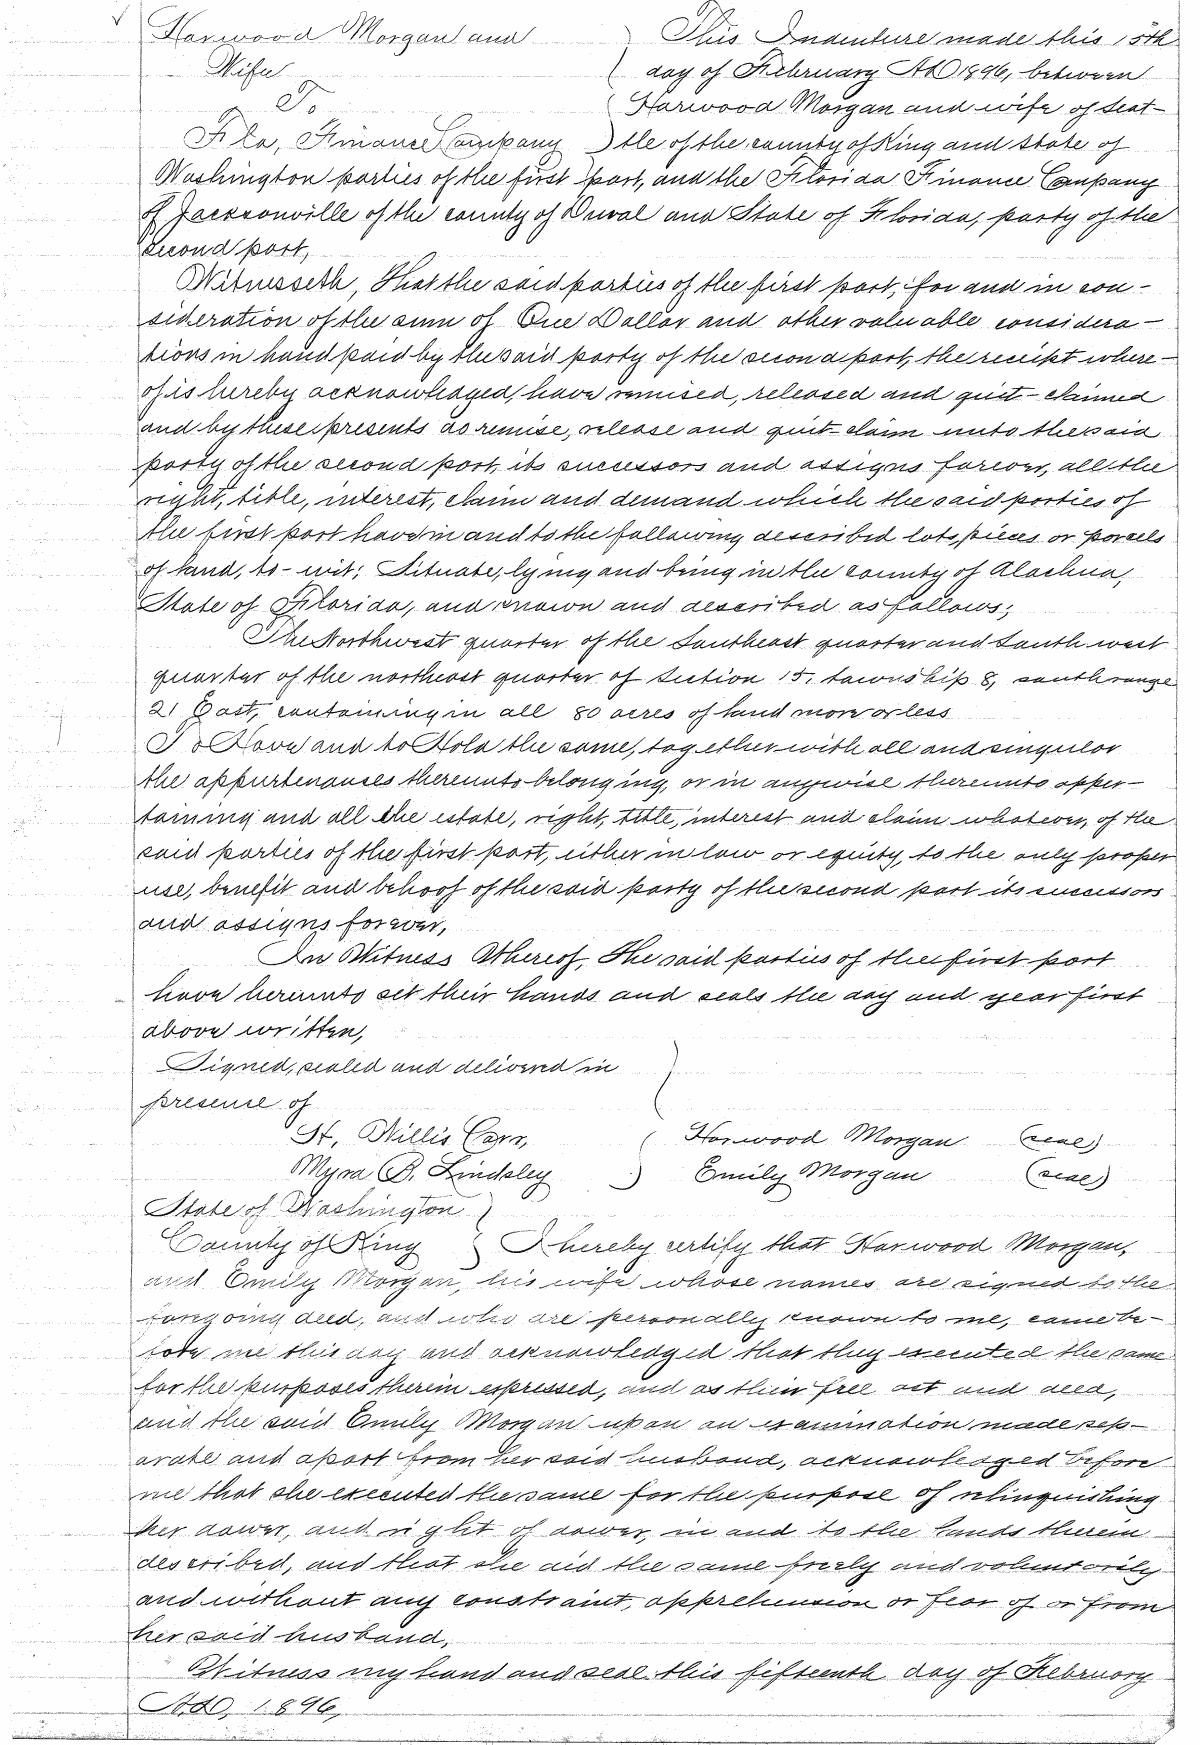 Harwood Morgan and
Wife
To
Fla, Finance Company
This Indenture made this 15th
day of February AD 1896, between
Harwood Morgan and wife of Seat-
tle of the county of King and State of
Washington parties of the first part, and the Florida Finance Company
of Jacksonville of the county of Duval and State of Florida, party of the
second part,
Witnesseth, That the said parties of the first part, for and in con-
sideration of the sum of One Dollar and other valuable considera-
tions in hand paid by the said party of the second part, the receipt where-
of is hereby acknowledged, have remised, released and quit-claimed
and by these presents do remise, release and quit-claim unto the said
party of the second part, its successors and assigns forever, all the
right, title, interest, claim and demand which the said parties of
the first part have in and to the following described lots, pieces or parcels
of land, to-wit; Situate, lying and being in the county of Alachua,
State of Florida, and known and described as follows;
The Northwest quarter of the Southeast quarter and South west
quarter of the northeast quarter of Section 15, township 8, south range
21 East, containing in all 80 acres of land more or less
To Have and to Hold the same, together with all and singular
the appurtenances thereunto belonging, or in anywise thereunto apper-
taining and all the estate, right, title, interest and claim whatever, of the
said parties of the first part, either in law or equity, to the only proper
use, benefit and behoof of the said party of the second part its successors
and assigns forever,
In Witness Whereof, The said parties of the first part
have hereunto set their hands and seals the day and year first
above written,
Signed, sealed and delivered in
presence of
St, Willis Carr, Harwood Morgan (seal)
Myra B. Lindsley Emily Morgan (seal)
State of Washington
County of King I hereby certify that Harwood Morgan,
and Emily Morgan, his wife whose names are signed to the
foregoing deed, and who are personally known to me, came be-
fore me this day and acknowledged that they executed the same
for the purposes therein expressed, and as their free act and deed,
and the said Emily Morgan upon an examination made sep-
arate and apart from her said husband, acknowledged before
me that she executed the same for the purpose of relinquishing
her dower, and right of dower, in and to the lands therein
described, and that she did the same freely and voluntarily
and without any constraint, apprehension or fear of or from
her said husband,
Witness my hand and seal this fifteenth day of February
AD, 1896,